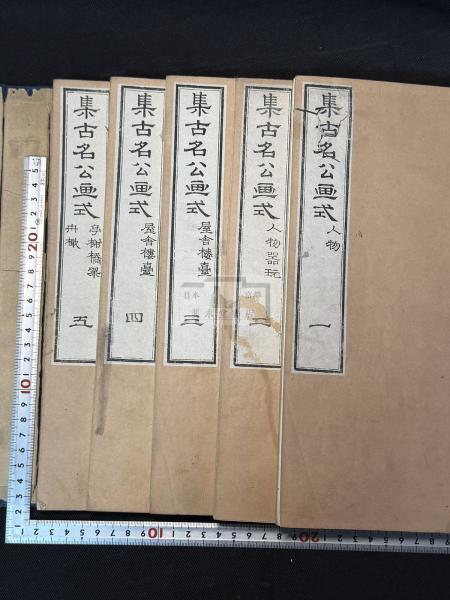 集古名公画式
人物
一
集古名公画式
人物器玩
二
集古名公画式
屋舎樓臺
三
集古名公画式
屋舎樓臺
四
集古名公画式
亭榭橋梁
舟檝
五